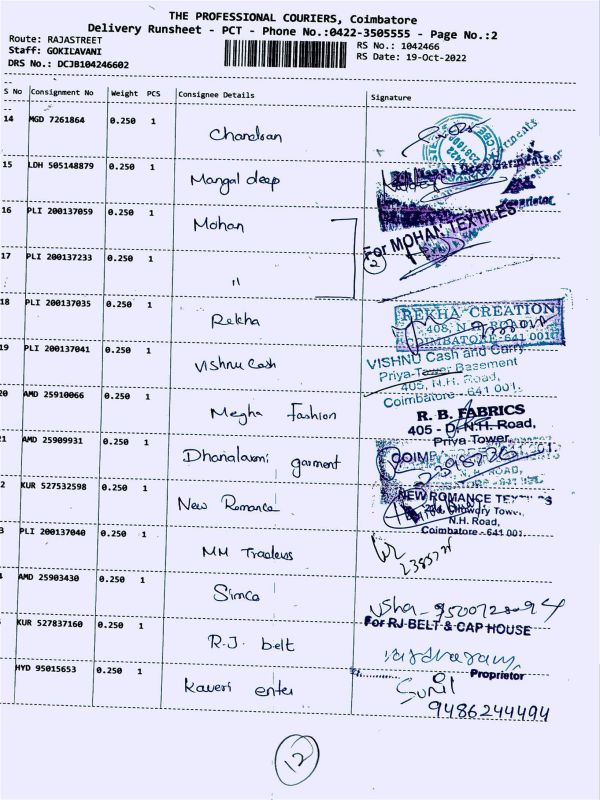 THE PROFESSIONAL COURIERS, Coimbatore
Delivery Runsheet - PCT - Phone No.:0422-3505555 - Page No.:2
Route: RAJASTREET
Staff: GOKILAVANI
DRS No.: DCJB104246602
RS No.: 1042466
RS Date: 19-Oct-2022
S No Consignment No Weight PCS Consignee Details Signature
14 MGD 7261864 0.250 1 Chandran
15 LDH 505148879 0.250 1 Mangal deep
16 PLI 200137059 0.250 1 Mohan
For MOHAN TEXTILES
17 PLI 200137233 0.250 1 "
2
18 PLI 200137035 0.250 1 Rekha
REKHA CREATION
COIMBATORE-641 001
19 PLI 200137041 0.250 1 Vishnu Cash
VISHNU Cash and Carry
Priya-Tower Basement
405, N.H. Road,
Coimbatore - 641 001.
20 AMD 25910066 0.250 1 Megha Fashion
R. B. FABRICS
405 - D, N.H. Road,
Priya Tower
21 AMD 25909931 0.250 1 Dhanalaxmi garment
2 KUR 527532598 0.250 1 New Romance
NEW ROMANCE TEXTILES
N.H. Road,
Coimbatore - 641 001.
3 PLI 200137040 0.250 1 MM Traders
AMD 25903430 0.250 1 Simco
Usha -
KUR 527837160 0.250 1 R.J. belt
For RJ BELT & CAP HOUSE
Proprietor
HYD 95015653 0.250 1 Kaveri enter
Sunil
9486244494
12